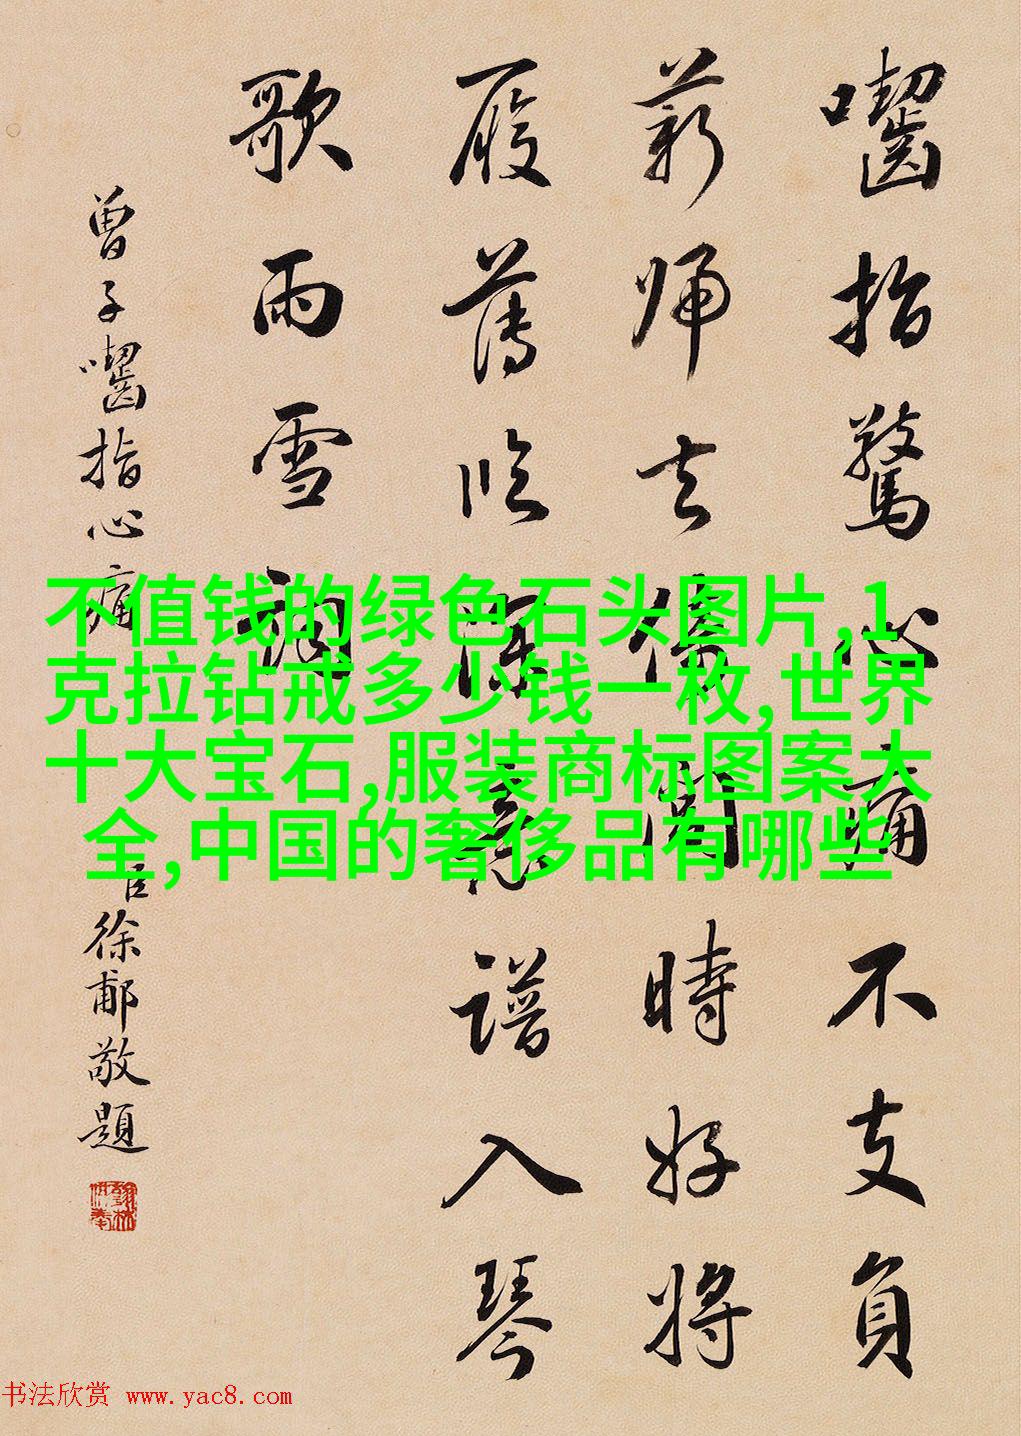 囓指驚心痛不支負
薪歸去倚閭時好將
履薄臨深意譜入琴
歌雨雪
曾子囓指心痛
臣徐郙敬題
不值钱的绿色石头图片,1
克拉钻戒多少钱一枚,世界
十大宝石,服装商标图案大
全,中国的奢侈品有哪些
书法欣赏 www.yac8.com